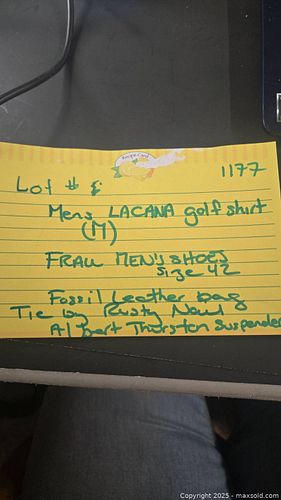 Recipe Card
1177
Lot #
Mens LACANA golf shirt
(M)
FRAU MEN'S SHOES
Size 42
Fossil Leather bag
Tie by Rusty
Albert Thurston suspender
Copyright © 2025 - maxsold.com